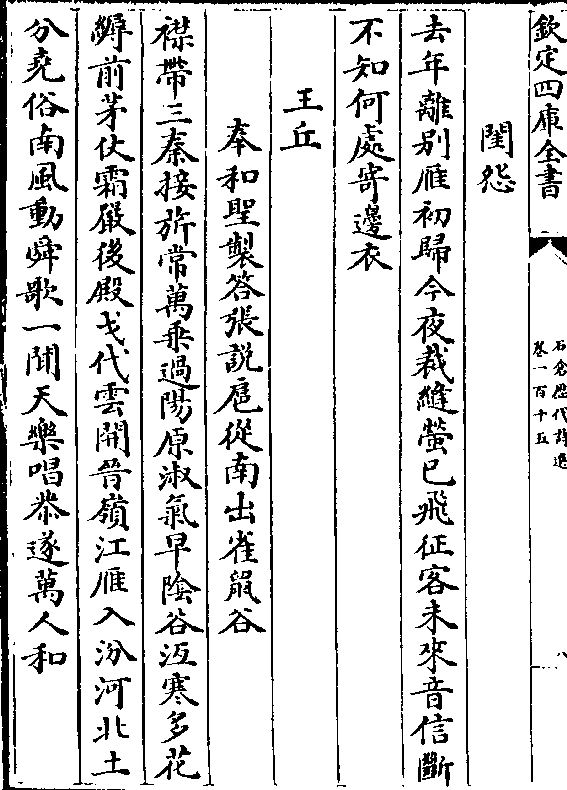 欽定四庫全書
石倉歷代詩選
卷一百十五
八
閨怨
去年離別雁初歸今夜裁縫螢已飛征客未來音信斷
不知何處寄邊衣
王丘
奉和聖製答張說扈從南出雀鼠谷
襟帶三秦接旂常萬乘過陽原淑氣早陰谷沍寒多花
縟前茅仗霜嚴後殿戈代雲開晉嶺江雁入汾河北土
分堯俗南風動舜歌一聞天樂唱恭遂萬人和